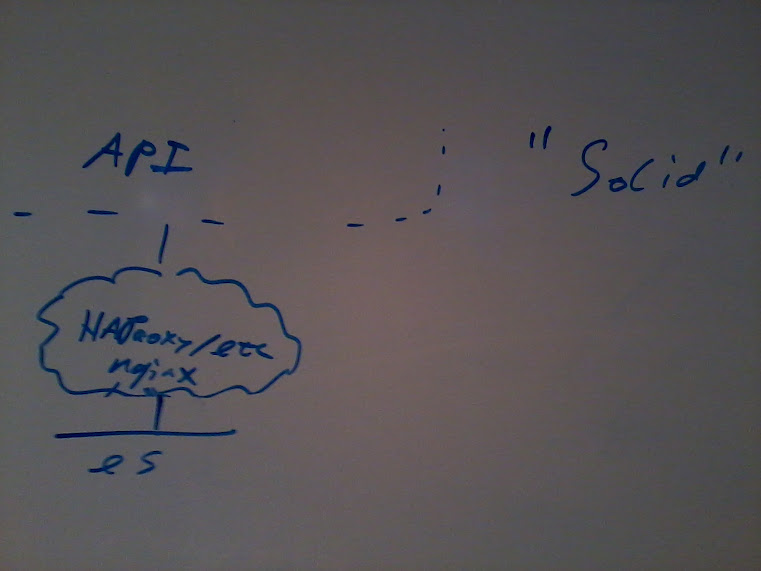 API
"Solid"
HAProxy/etc
nginx
es